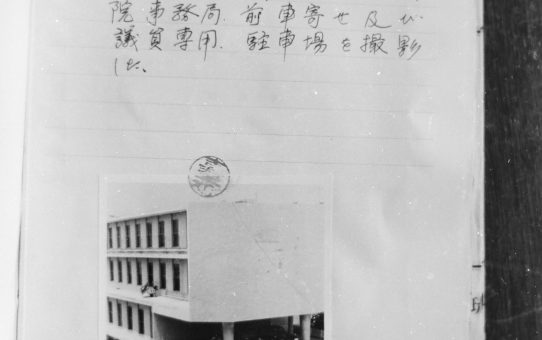 院事務局前車寄せ及び
議員専用駐車場を撮影
した。